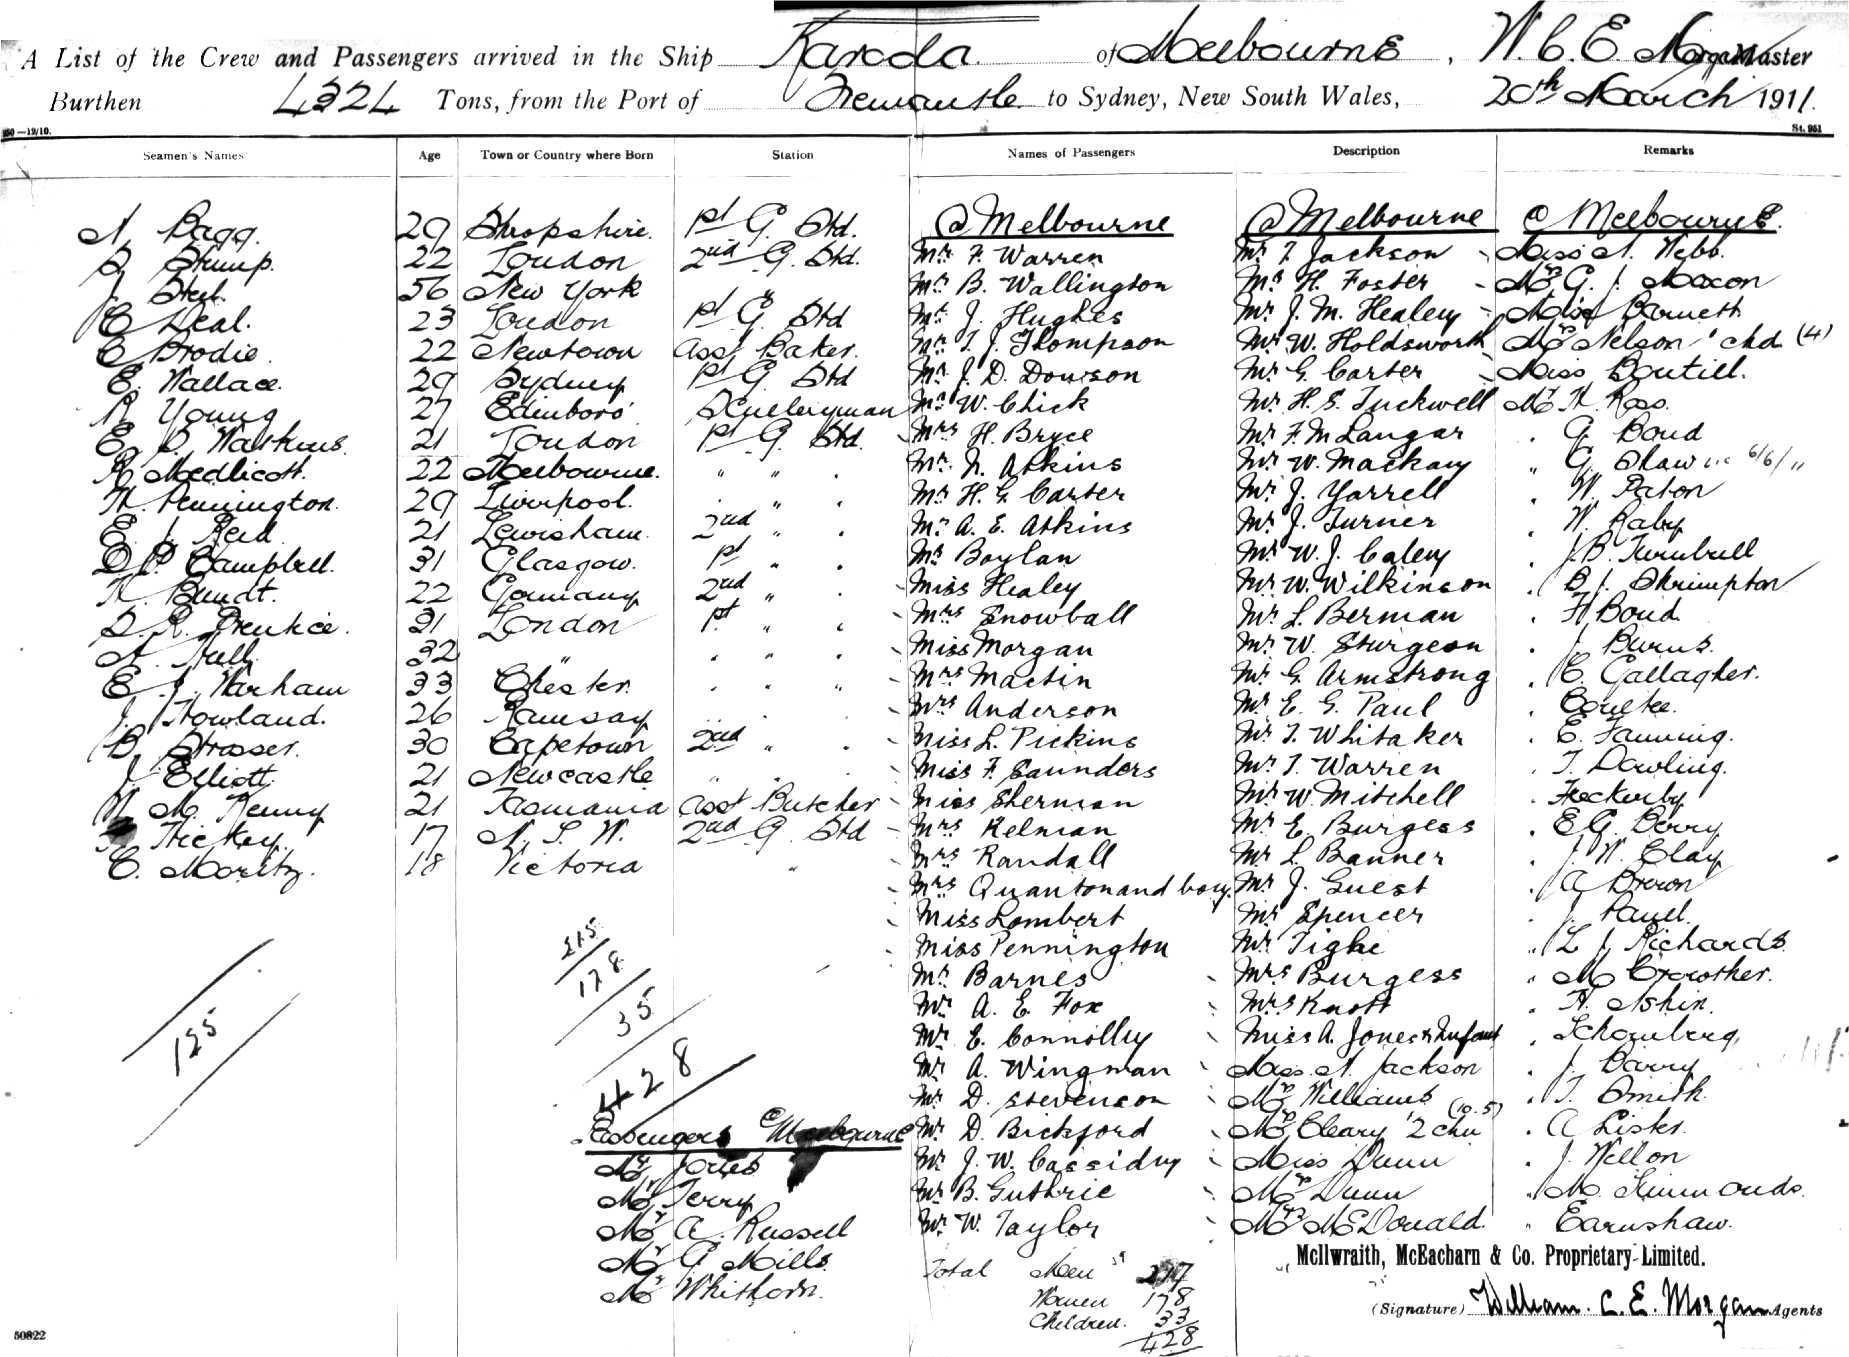 A List of the Crew and Passengers arrived in the Ship Karoola of Melbourne, W. C. E. Morgan Master
Burthen 4324 Tons, from the Port of Fremantle to Sydney, New South Wales, 20th March 1911.
St. 951
Seamen's Names Age Town or Country where Born Station Names of Passengers Description Remarks
@ Melbourne @ Melbourne @ Melbourne
N Bagg. 29 Shropshire. 1st G. Std. Mr F. Warren Mr T. Jackson Miss N. Webb.
S Stump. 22 London 2nd G. Std. Mr B. Wallington Mr H. Foster Mr G. J. Moxon
J Steel. 56 New York " Mr J. Hughes Mr J. M. Healey Miss Barnett
C Deal. 23 London 1st G. Std Mr T. J. Thompson Mr W. Holdsworth Mrs Nelson 1 chd (4)
C Brodie. 22 Newtown Asst Baker. Mr J. D. Dowson Mr G. Carter Miss Boutill.
E. Wallace. 29 Sydney 1st G Std Mr W. Chick Mr H. S. Tuckwell Mr H. Ross.
R Young 27 Edinboro' Sculleryman Mrs H. Bryce Mr F. M Langar " G Boud
E. S. Watkins. 21 London 1st G. Std. Mr N. Atkins Mr W. Mackay " G. Shaw 6/6/11
R Medlicott. 22 Melbourne. " " " Mr H. G. Carter Mr J. Yarrell " W. Paton
H. Pennington. 29 Liverpool. " " " Mr A. E. Atkins Mr J. Turner " W. Raby
E. J. Reid 21 Lewisham. 2nd " " Mr Boylan Mr W. J. Caley " J. B. Turnbull
D. P. Campbell. 31 Glasgow. 1st " " Miss Healey Mr W. Wilkinson " B. J. Shrimpton
H. Bundt. 22 Germany 2nd " " Mrs Snowball Mr L. Berman " H Boud
S. R. Prentice. 31 London 1st. " " Miss Morgan Mr W. Sturgeon " J. Burns.
A. Hull 32 " " " " Mrs Martin Mr G. Armstrong " C. Gallagher.
E. J. Warham 33 Chester. " " " Mrs Anderson Mr E. G. Paul " Coultee.
J. Howland. 26 Ramsay " " " Miss L. Pickins Mr T. Whitaker " E. Fanning.
B. Strasser. 30 Capetown 2nd " " Miss F. Saunders Mr T. Warren " T. Dowling.
J. Elliott. 21 Newcastle " " " Miss Sherman Mr W. Mitchell " Fleckerby
M. Kenny 21 Tasmania Asst Butcher Mrs Kelman Mr E. Burgess " E G. Berry
Hickey. 17 N. S. W. 2nd G Std Mrs Randall Mr L. Banner " J. W. Clay
C. Moritz. 18 Victoria " Mrs Quanton and boy. Mr J. Guest " A Brown
Miss Lombert Mr Spencer " J. Paul.
Miss Pennington Mr Tighe " L J Richards
Mr Barnes Mrs Burgess " M Crowther.
Mr A. E. Fox Mrs Knott " H. Ashin.
Mr E. Connolly Miss A. Jones & Infant " Schomberg.
Mr A. Wingman Miss N. Jackson " J. Barry
Mr D. Stevenson Mrs Williams " T. Smith.
Mr D. Bickford Mrs Cleary 2 chn (10. 5) " A Lister.
Mr J. W. Cassidy Miss Dunn " J. Wellon
Mr B. Guthrie Mrs Dunn " M. Simmonds.
Mr W. Taylor Mrs McDonald. " Earnshaw.
125
215
178
35
428
Passengers @ Melbourne
Mr Jones
Mr Terry
Mr A. Russell
Mr G Mills
Mr Whithorn.
Total Men 217
Women 178
Children. 33
428
McIlwraith, McEacharn & Co. Proprietary Limited.
(Signature) William. C. E. Morgan Agents
50822